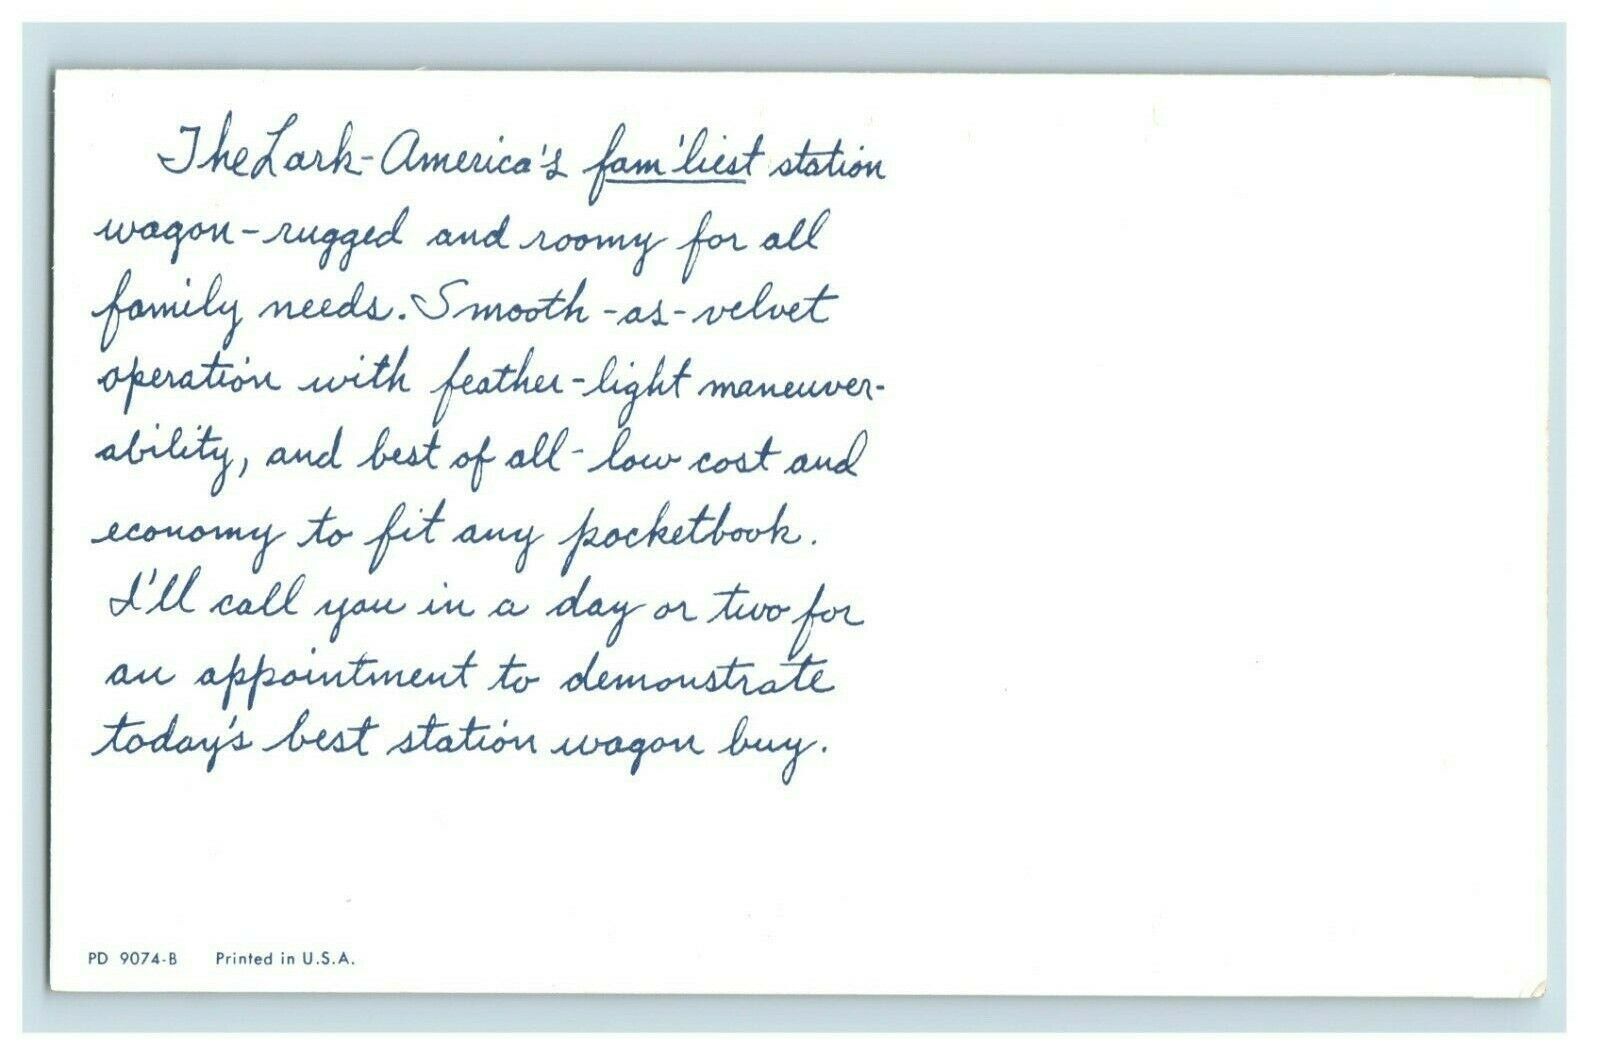 The Lark-America's fam'liest station
wagon-rugged and roomy for all
family needs. Smooth-as-velvet
operation with feather-light maneuver-
ability, and best of all-low cost and
economy to fit any pocketbook.
I'll call you in a day or two for
an appointment to demonstrate
today's best station wagon buy.
PD 9074-B Printed in U.S.A.